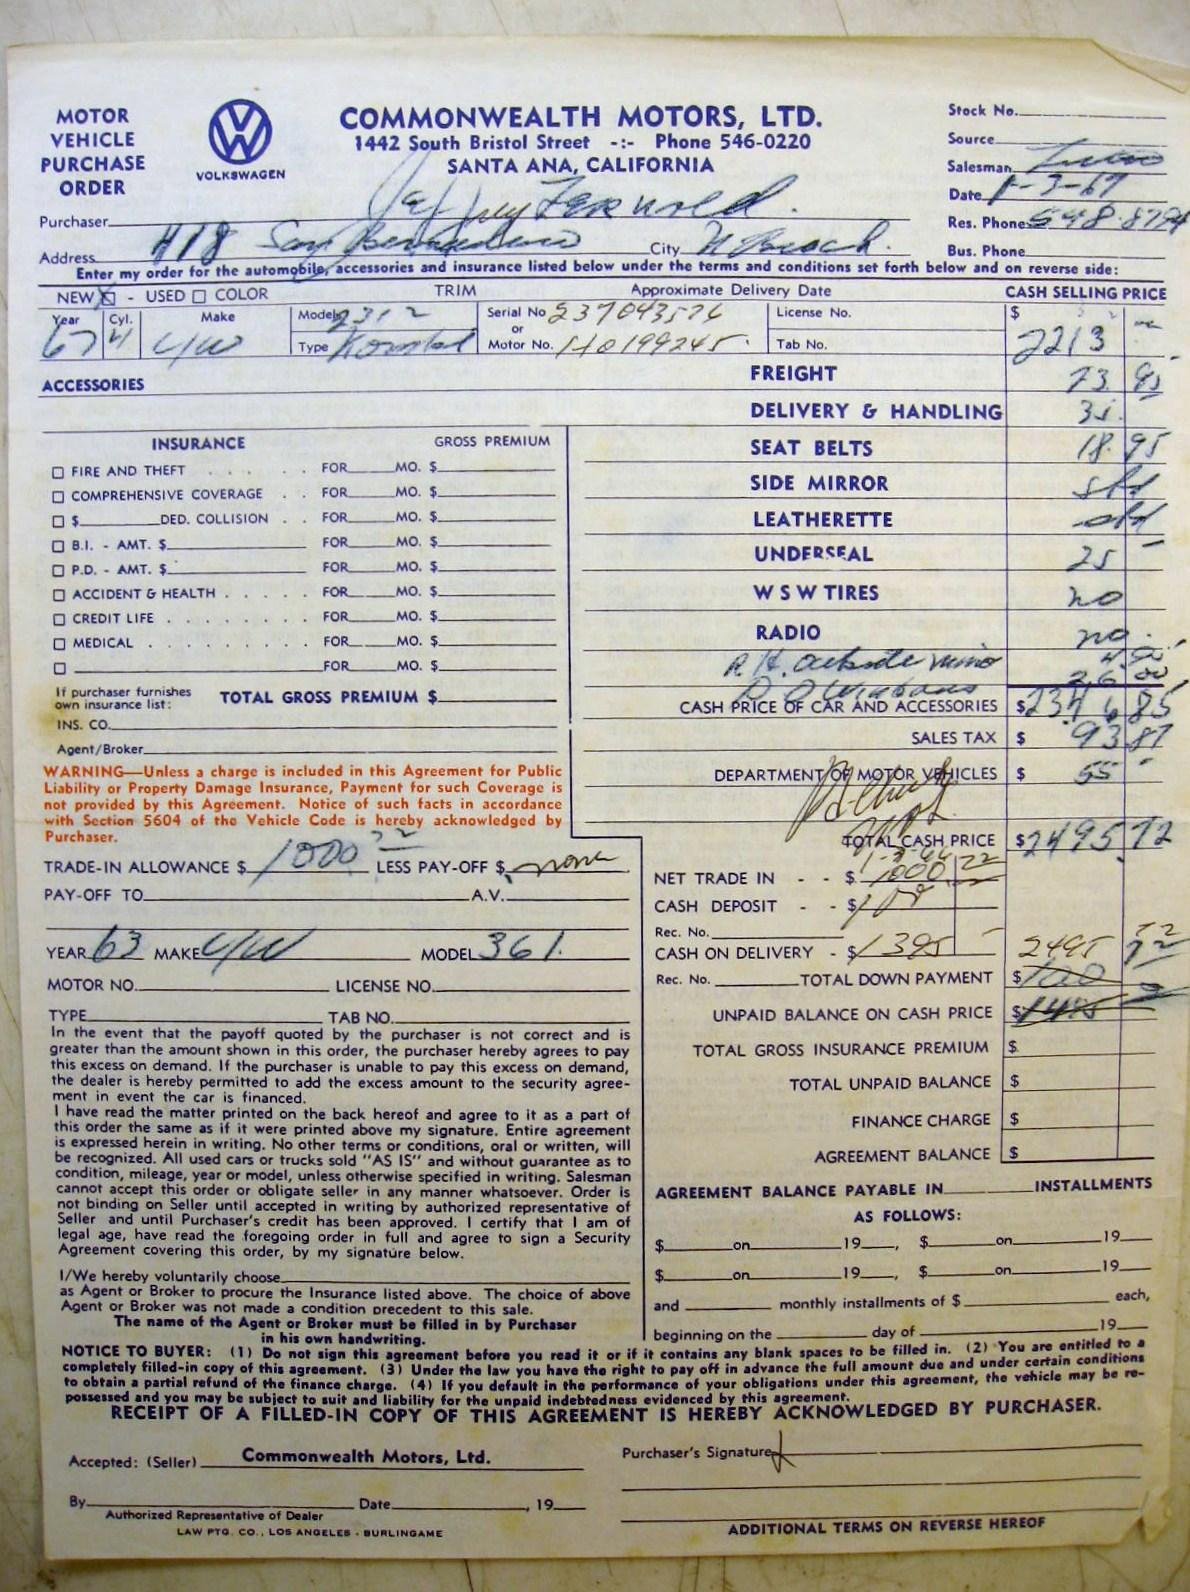 MOTOR
VEHICLE
PURCHASE
ORDER
VW
VOLKSWAGEN
COMMONWEALTH MOTORS, LTD.
1442 South Bristol Street -:- Phone 546-0220
SANTA ANA, CALIFORNIA
Stock No.
Source
Salesman
Date 1-3-67
Purchaser Jeffrey
Res. Phone 548-8794
Address 418 San Bernardino City N Beach.
Bus. Phone
Enter my order for the automobile, accessories and insurance listed below under the terms and conditions set forth below and on reverse side:
NEW X - USED COLOR TRIM Approximate Delivery Date CASH SELLING PRICE
Year 67 Cyl. 4 Make V/W Model 2312 Serial No 237043576 License No. $ 2213 —
Type Kombi or Motor No. H0199245 Tab No.
ACCESSORIES
FREIGHT 73.95
DELIVERY & HANDLING 35.
SEAT BELTS 18.95
SIDE MIRROR std
LEATHERETTE std
UNDERSEAL 25 —
W S W TIRES no
RADIO no.
R.H. outside mirro 4 90
P.O. Windows 26 00
INSURANCE GROSS PREMIUM
FIRE AND THEFT . . . . . . FOR MO. $
COMPREHENSIVE COVERAGE . . FOR MO. $
$ DED. COLLISION . . FOR MO. $
B.I. - AMT. $ FOR MO. $
P.D. - AMT. $ FOR MO. $
ACCIDENT & HEALTH . . . . . FOR MO. $
CREDIT LIFE . . . . . . . . FOR MO. $
MEDICAL . . . . . . . . . FOR MO. $
FOR MO. $
If purchaser furnishes
own insurance list: TOTAL GROSS PREMIUM $
INS. CO.
Agent/Broker
CASH PRICE OF CAR AND ACCESSORIES $ 2346 85
SALES TAX $ 93 87
DEPARTMENT OF MOTOR VEHICLES $ 55 —
TOTAL CASH PRICE $ 2495 72
WARNING—Unless a charge is included in this Agreement for Public
Liability or Property Damage Insurance, Payment for such Coverage is
not provided by this Agreement. Notice of such facts in accordance
with Section 5604 of the Vehicle Code is hereby acknowledged by
Purchaser.
TRADE-IN ALLOWANCE $ 1000 72 LESS PAY-OFF $ none
PAY-OFF TO A.V.
YEAR 63 MAKE V/W MODEL 361.
MOTOR NO. LICENSE NO.
TYPE TAB NO.
NET TRADE IN - - $ 1000 72
CASH DEPOSIT - - $ 100
Rec. No.
CASH ON DELIVERY - $ 1395 — 2495 72
Rec. No. TOTAL DOWN PAYMENT $ 100
UNPAID BALANCE ON CASH PRICE $
TOTAL GROSS INSURANCE PREMIUM $
TOTAL UNPAID BALANCE $
FINANCE CHARGE $
AGREEMENT BALANCE $
In the event that the payoff quoted by the purchaser is not correct and is
greater than the amount shown in this order, the purchaser hereby agrees to pay
this excess on demand. If the purchaser is unable to pay this excess on demand,
the dealer is hereby permitted to add the excess amount to the security agree-
ment in event the car is financed.
I have read the matter printed on the back hereof and agree to it as a part of
this order the same as if it were printed above my signature. Entire agreement
is expressed herein in writing. No other terms or conditions, oral or written, will
be recognized. All used cars or trucks sold "AS IS" and without guarantee as to
condition, mileage, year or model, unless otherwise specified in writing. Salesman
cannot accept this order or obligate seller in any manner whatsoever. Order is
not binding on Seller until accepted in writing by authorized representative of
Seller and until Purchaser's credit has been approved. I certify that I am of
legal age, have read the foregoing order in full and agree to sign a Security
Agreement covering this order, by my signature below.
I/We hereby voluntarily choose
as Agent or Broker to procure the Insurance listed above. The choice of above
Agent or Broker was not made a condition precedent to this sale.
The name of the Agent or Broker must be filled in by Purchaser
in his own handwriting.
AGREEMENT BALANCE PAYABLE IN INSTALLMENTS
AS FOLLOWS:
$ on 19 , $ on 19
$ on 19 , $ on 19
and monthly installments of $ each,
beginning on the day of 19
NOTICE TO BUYER: (1) Do not sign this agreement before you read it or if it contains any blank spaces to be filled in. (2) You are entitled to a
completely filled-in copy of this agreement. (3) Under the law you have the right to pay off in advance the full amount due and under certain conditions
to obtain a partial refund of the finance charge. (4) If you default in the performance of your obligations under this agreement, the vehicle may be re-
possessed and you may be subject to suit and liability for the unpaid indebtedness evidenced by this agreement.
RECEIPT OF A FILLED-IN COPY OF THIS AGREEMENT IS HEREBY ACKNOWLEDGED BY PURCHASER.
Accepted: (Seller) Commonwealth Motors, Ltd.
Purchaser's Signature
By Date , 19
Authorized Representative of Dealer
LAW PTG. CO., LOS ANGELES - BURLINGAME
ADDITIONAL TERMS ON REVERSE HEREOF